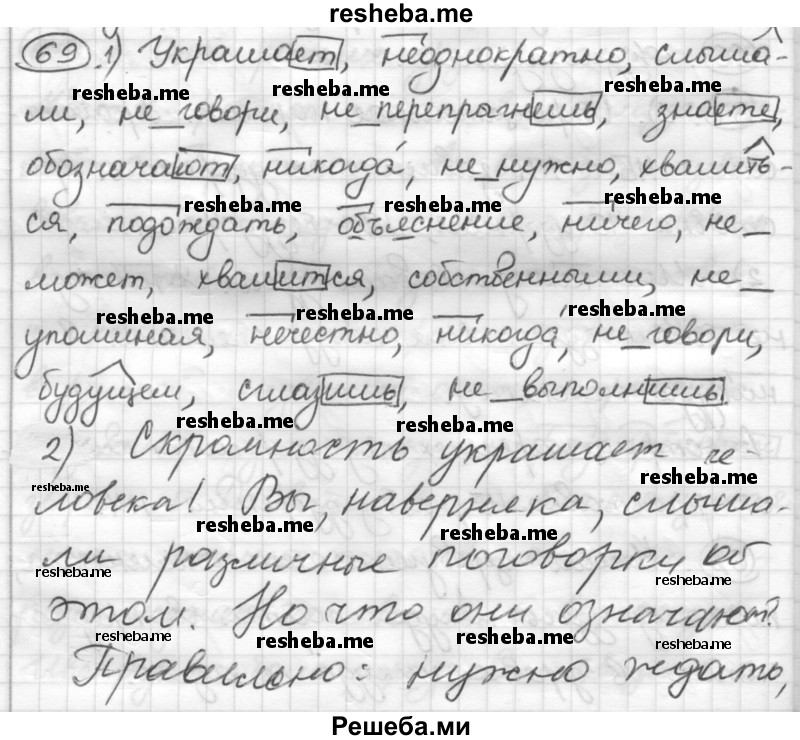 resheba.me
69 1) Украшает, неоднократно, слыша-
resheba.me resheba.me resheba.me
ли, не говори, не перепрыгнешь, знаете,
обозначают, никогда, не нужно, хвалить-
resheba.me resheba.me resheba.me
ся, подождать, объяснение, ничего, не
может, хвалится, собственными, не
resheba.me resheba.me resheba.me
упоминая, нечестно, никогда, не говори,
будущем, сглазишь, не выполнишь
resheba.me resheba.me
2) Скромность украшает че-
resheba.me resheba.me
ловека! Вы, наверняка, слыша-
resheba.me resheba.me
ли различные поговорки об
resheba.me resheba.me
этом. Но что они означают?
resheba.me resheba.me resheba.me resheba.me
Правильно: нужно ждать,
Решеба.ми